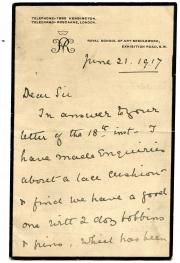 TELEPHONE: 1988 KENSINGTON.
TELEGRAMS: ROSCARNE, LONDON.
ROYAL SCHOOL OF ART NEEDLEWORK,
EXHIBITION ROAD, S.W.
June 21. 1917
Dear Sir
In answer to your
letter of the 18th inst- I
have made Enquiries
about a lace cushion
& find we have a good
one with 2 doz bobbins
& pins, which has been